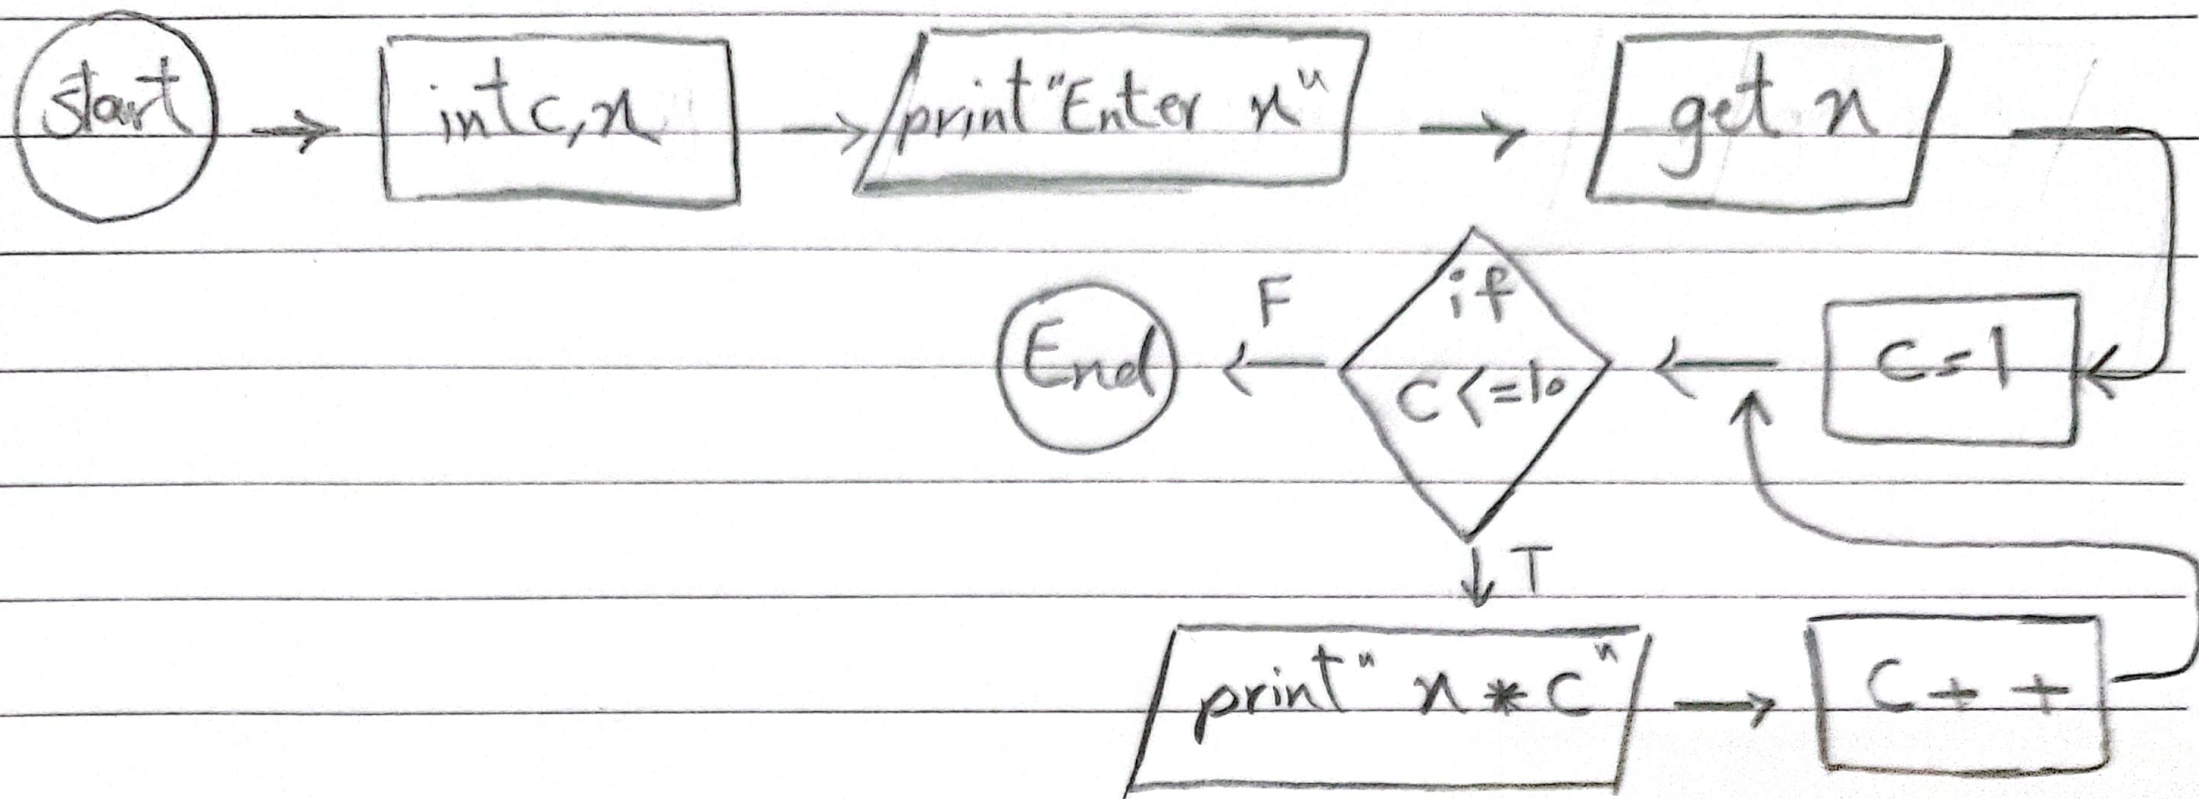 start
int c, n
print "Enter n"
get n
c = 1
if
c <= 10
F
End
T
print " n * c "
c + +